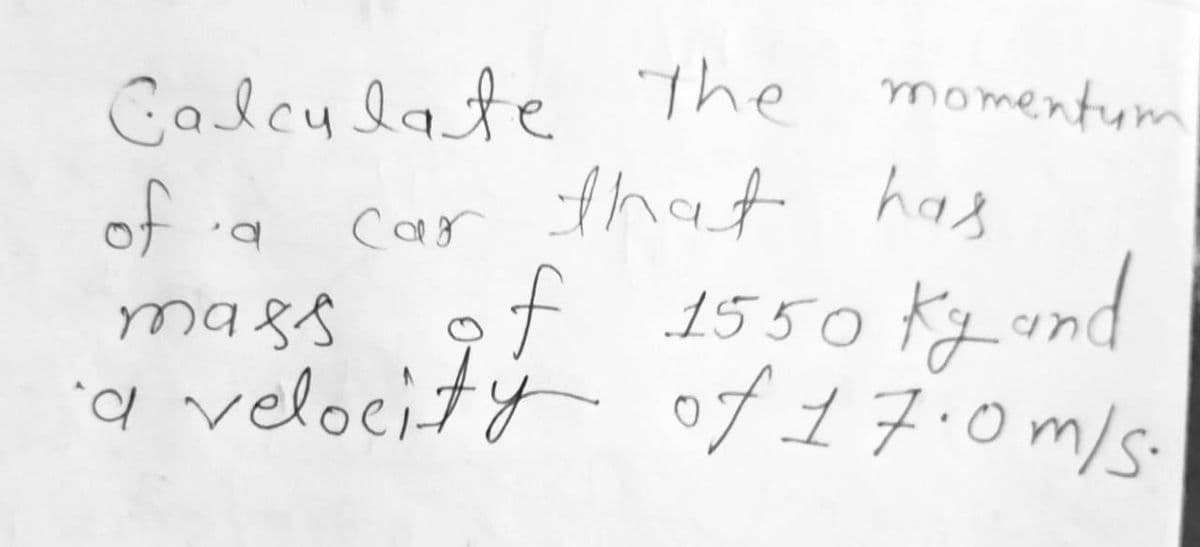 Calculate the momentum
of a car that has
mass of 1550 kg and
a velocity of 17.0 m/s.